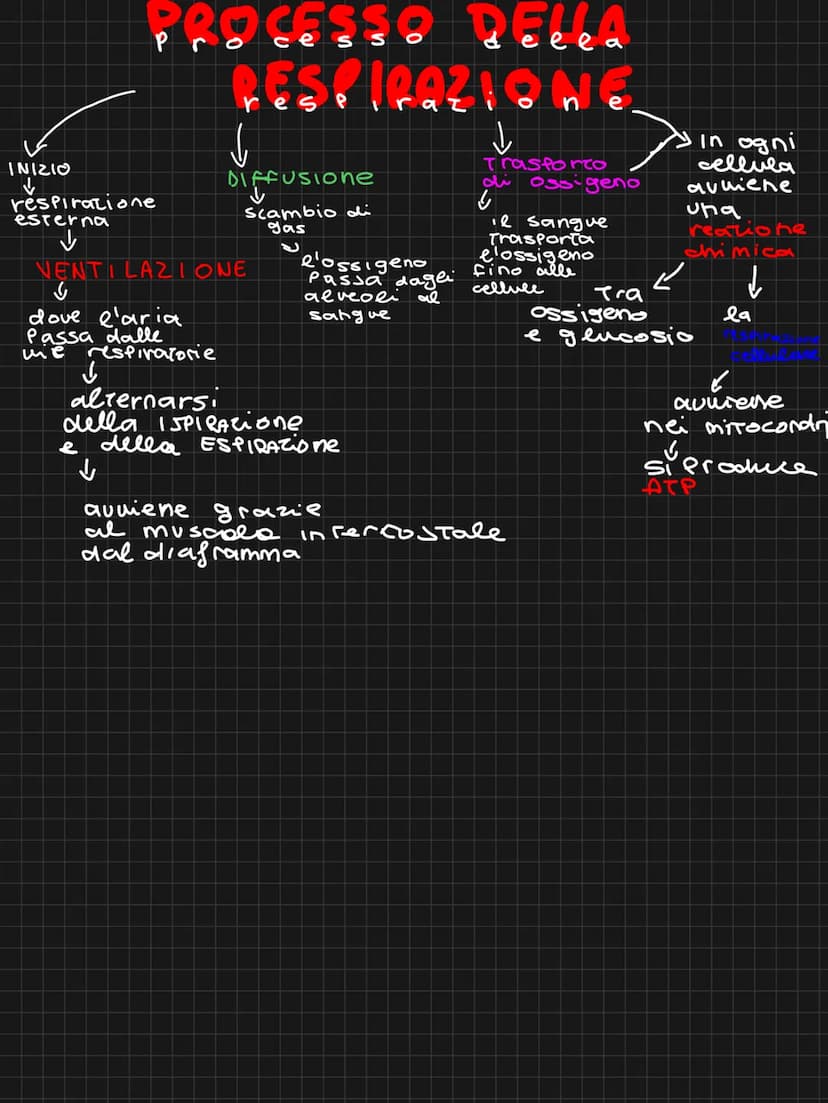 PROCESSO DELLA
processo della
RESPIRAZIONE
respirazione
INIZIO
respirazione
esterna
VENTILAZIONE
dove l'aria
passa dalle
vie respiratorie
alternarsi
della ISPIRAZIONE
e della ESPIRAZIONE
avviene grazie
al muscolo intercostale
dal diaframma
DIFFUSIONE
scambio di
gas
l'ossigeno
passa dagli
alveoli al
sangue
Trasporto
di ossigeno
il sangue
trasporta
l'ossigeno
fino alle
cellule
In ogni
cellula
avviene
una
reazione
chimica
Tra
ossigeno
e glucosio
la
respirazione
cellulare
avviene
nei mitocondri
si produce
ATP